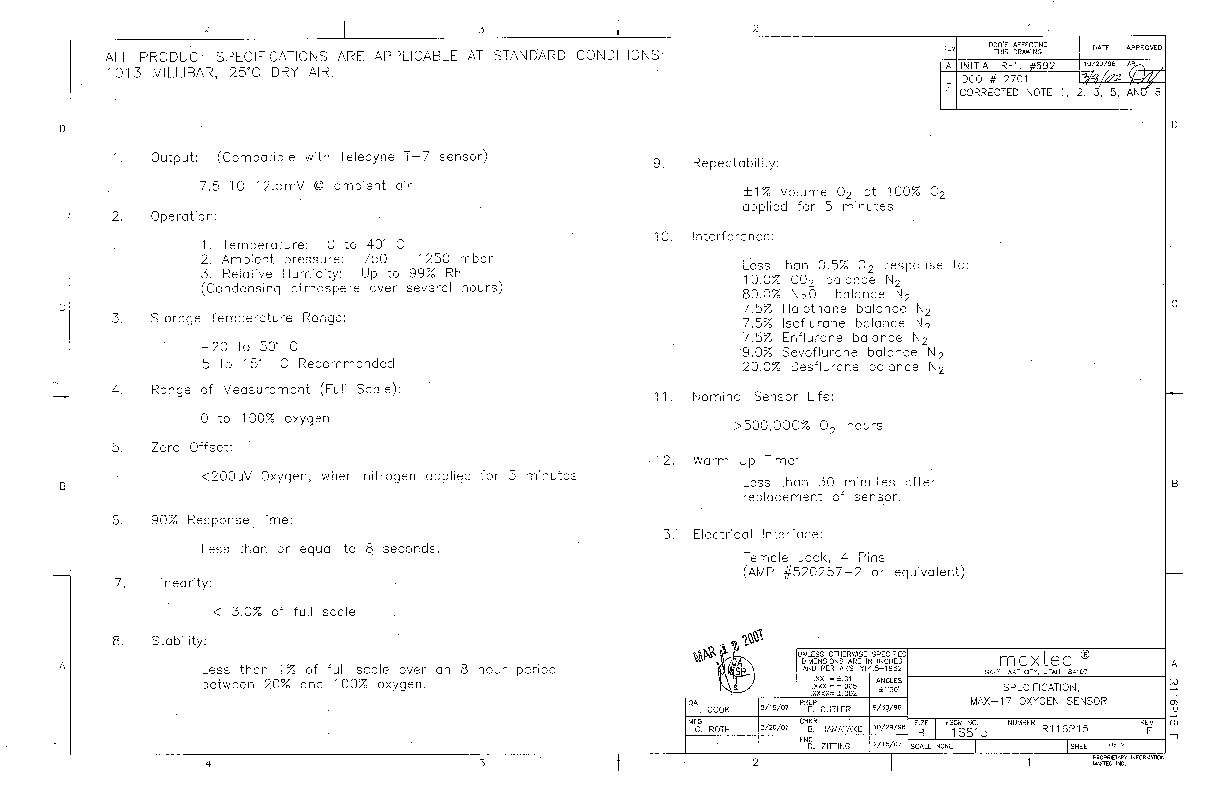 ALL PRODUCT SPECIFICATIONS ARE APPLICABLE AT STANDARD CONDITIONS:
1013 MILLIBAR, 25°C DRY AIR.
DCO'S AFFECTING
THIS DRAWING
DATE
APPROVED
A INITIAL REL. #592 10/29/98
DCO # 2701
CORRECTED NOTE 1, 2, 3, 5, AND 8
1. Output: (Compatible with Teledyne T-7 sensor)
ambient air
2. Operation:
1. Temperature: 0 to 40° C
2. Ambient pressure: 750 - 1250 mbar
3. Relative Humidity: Up to 99% RH
(Condensing atmospere over several hours)
3. Storage Temperature Range:
-20 to 50° C
5 to 15° C Recommended
4. Range of Measurement (Full Scale):
0 to 100% oxygen
5. Zero Offset:
<200uV Oxygen, when nitrogen applied for 5 minutes
6. 90% Response Time:
Less than or equal to 8 seconds.
7. Linearity:
< 3.0% of full scale
8. Stability:
Less than 1% of full scale over an 8 hour period
between 20% and 100% oxygen.
9. Repeatability:
±1% Volume O2 at 100% O2
applied for 5 minutes
10. Interference:
Less than 0.5% O2 response to:
10.0% CO2 balance N2
80.0% N2O balance N2
7.5% Halothane balance N2
7.5% Isoflurane balance N2
7.5% Enflurane balance N2
9.0% Sevoflurane balance N2
20.0% Desflurane balance N2
11. Nominal Sensor Life:
>500,000% O2 hours
12. Warm up Time:
Less than 30 minutes after
replacement of sensor.
Electrical Interface:
Female Jack, 4 Pins
(AMP #520257-2 or equivalent)
MAR 2 2007
UNLESS OTHERWISE SPECIFIED
DIMENSIONS ARE IN INCHES
AND PER ANSI Y14.5-1982
.XX = ±.01
.XXX = ±.005
.XXXX= ±.002
ANGLES
maxtec ®
SALT LAKE CITY, UTAH 84107
SPECIFICATION,
MAX-17 OXYGEN SENSOR
QA COOK
PREP BUTLER
MFG ROTH
CHKR
ENG ZITTING
SIZE B
FSCM NO.
NUMBER R116P15
REV
SCALE NONE
SHEET
PROPRIETARY INFORMATION
MAXTEC INC.